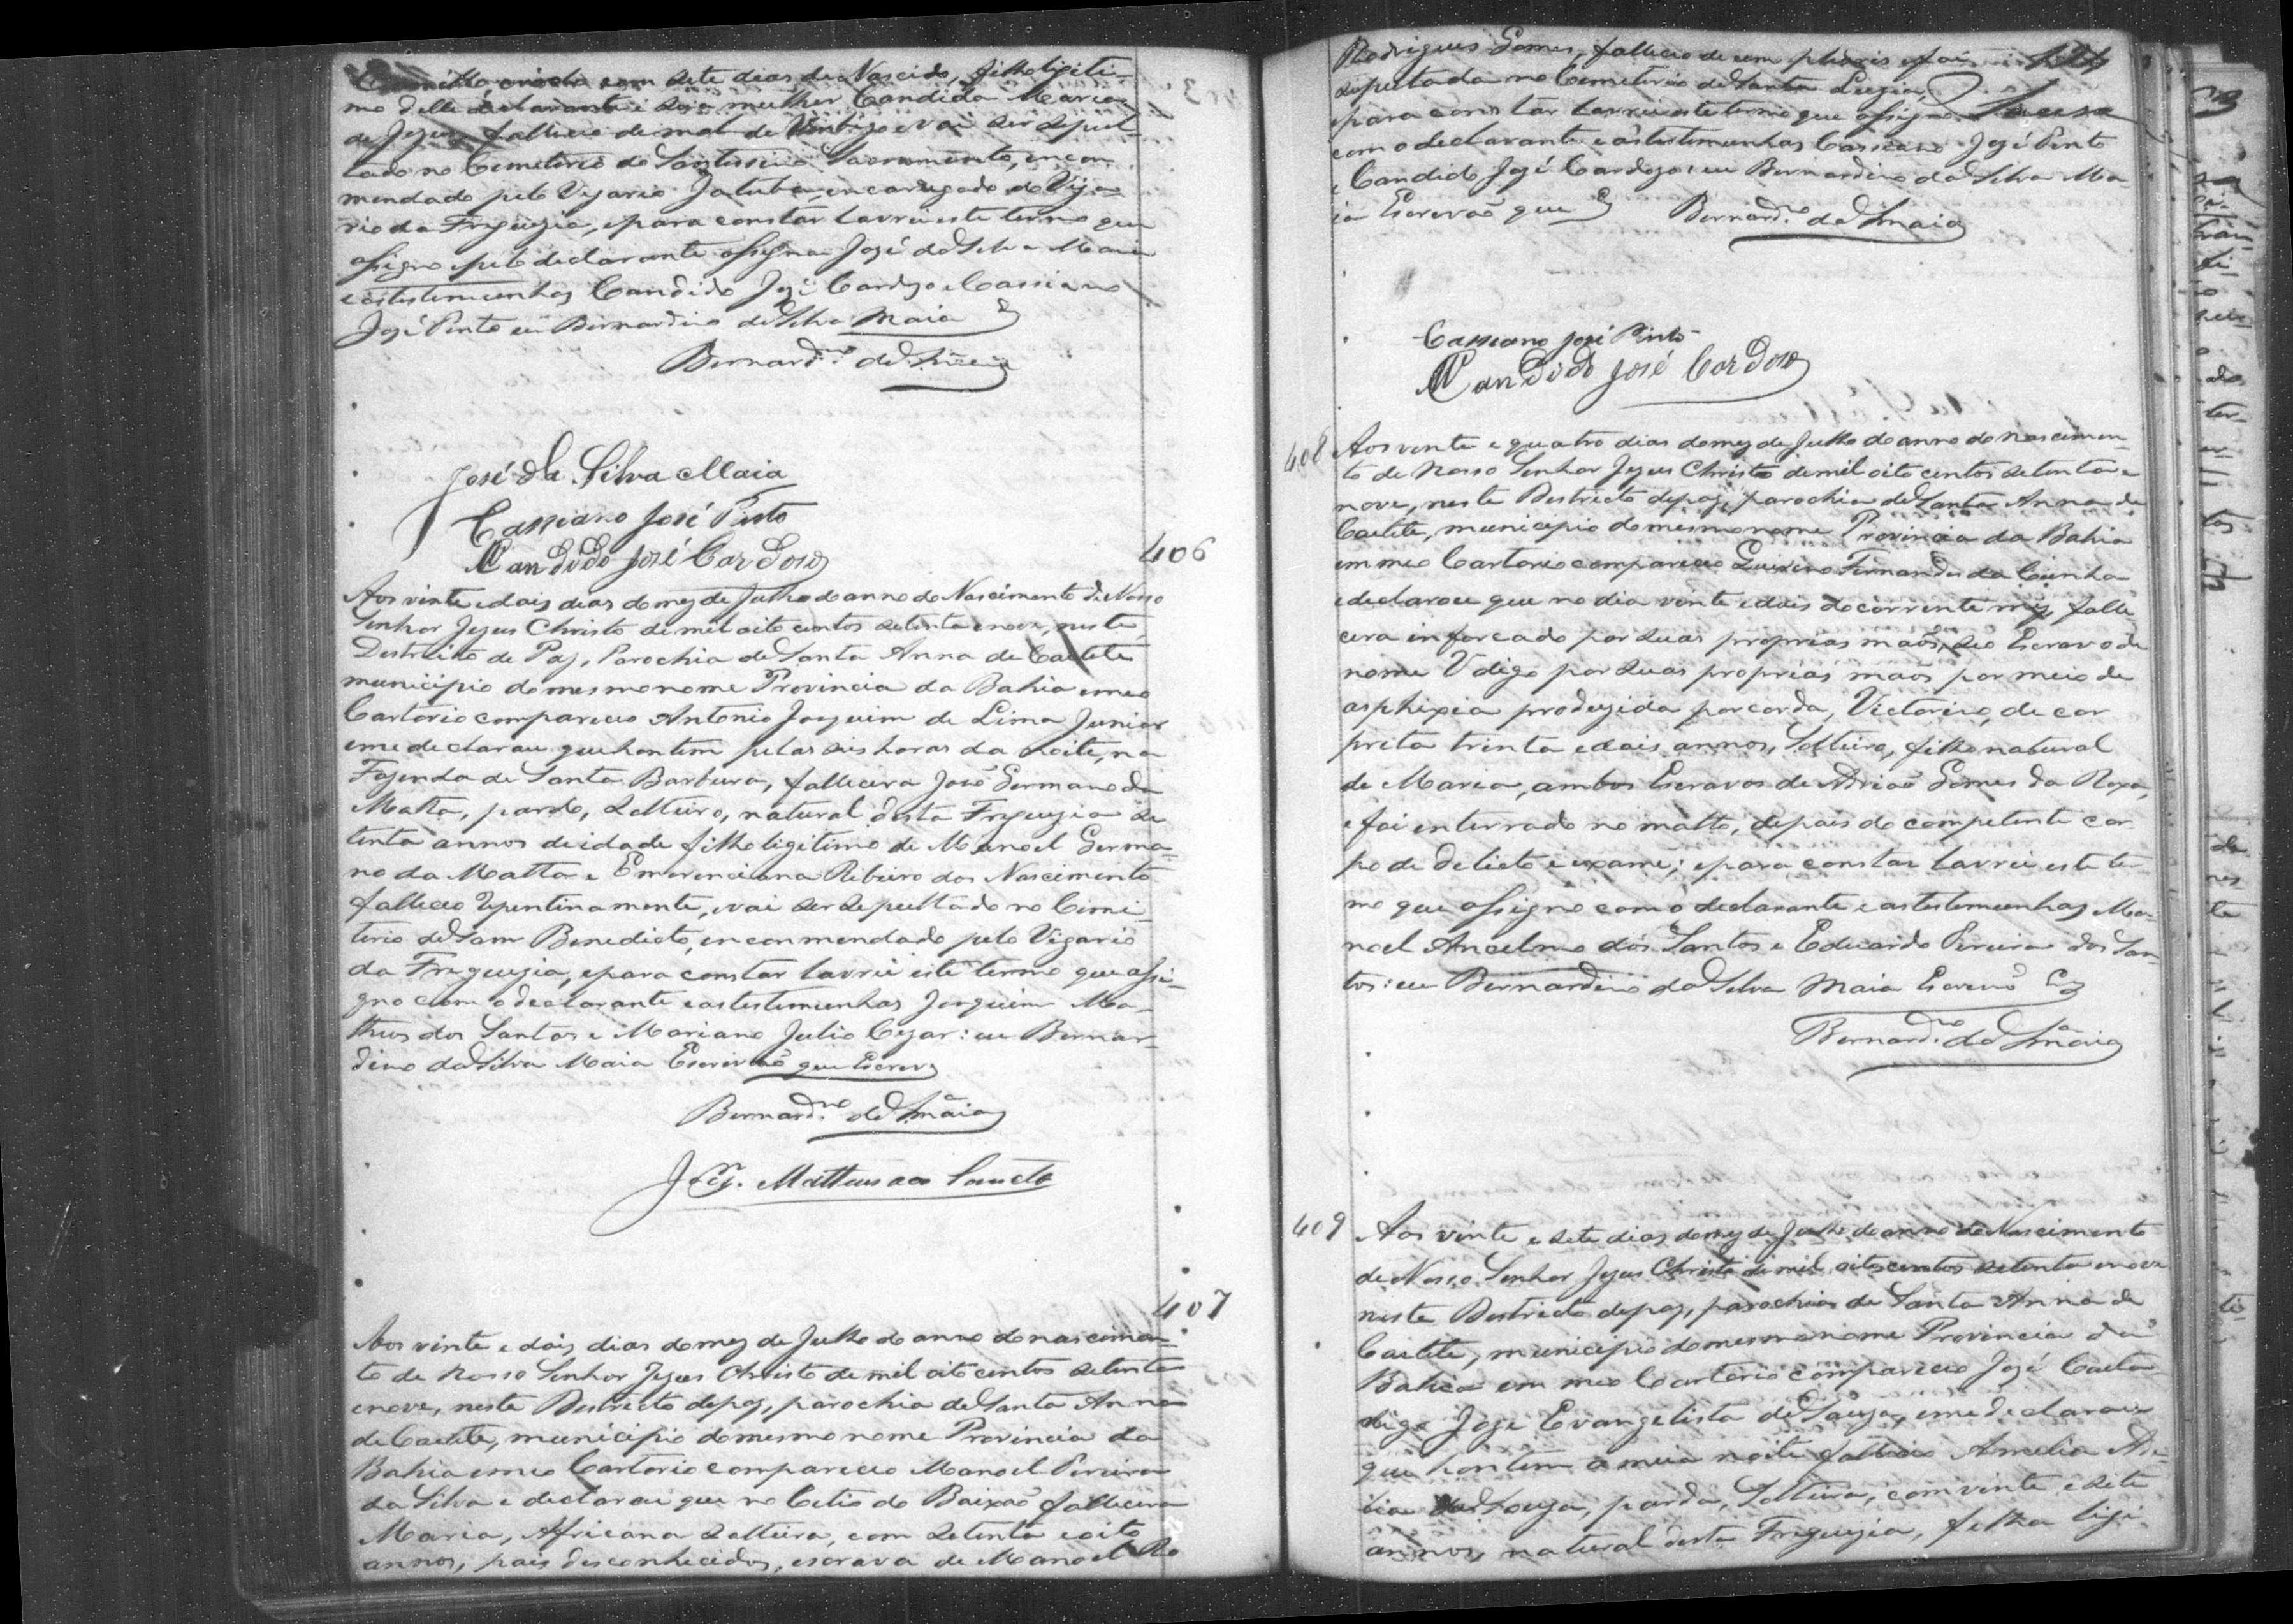 com sete dias de Nascido, filho legiti-
mo delle declarante e sua mulher Candida Maria
de Jezus, falleceo de mal de e vai ser sepul-
tado no Cemeterio do Santissimo Sacramento, encom-
mendado pelo Vigario Jatuba, encarregado do Viga-
rio da Freguezia, e para constar lavrei este termo que
assigno e pelo declarante assigna José da Silva Maia
e as testemunhas Candido José Cardozo e Cassiano
José Pinto eu Bernardino da Silva Maia
Bernardno da Sa Maia
José da Silva Maia
Cassiano José Pinto
Candido José Cardoso
406
Aos vinte e dois dias do mez de Julho do anno do Nascimento de Nosso
Senhor Jezus Christo de mil oito centos setenta e nove, neste
Destricto de Paz, Parochia de Santa Anna de Caetete
municipio do mesmo nome Provincia da Bahia em meo
Cartorio compareceo Antonio Joaquim de Lima Junior
e me declarou que hontem pelas seis horas da noite, na
Fazenda de Santa Barbura, fallecera José Germano da
Matta, pardo, solteiro, natural desta Freguezia se
tenta annos de idade filho legitimo de Manoel Germa-
no da Matta e Emerenciana Ribeiro dos Nascimento
falleceo repentinamente, e vai ser sepultado no Cimi-
terio de Sam Benedicto, enconmendado pelo Vigario
da Freguezia, e para constar lavrei este termo que assi-
gno com o declarante e as testemunhas Joaquim Ma-
theos dos Santos e Mariano Julio Cezar: eu Bernar-
dino da Silva Maia Escrivão que Escrevy
Bernardno da Sa Maia
Joaqm. Mattheus dos Sanctos
407
Aos vinte e dois dias do mez de Julho do anno do nascimen-
to de Nosso Senhor Jezus Christo de mil oito centos setenta
e nove, neste Destricto de paz, parochia de Santa Anna
de Caetite, municipio do mesmo nome Provincia da
Bahia em meo Cartorio compareceo Manoel Pereira
da Silva e declarou que no Citio do Baixão fallecera
Maria, Africana solteira, com setenta e oito
annos, pais desconhecidos, escrava de Manoel Ro
Rodrigues Gomes, falleceo de um pleoris e foi
sepultada no Cemeterio de Santa Luzia,
e para constar lavrei este termo que assigno
com o declarante e as testemunhas Cassiano José Pinto
e Candido José Cardozo: eu Bernardino da Silva Ma-
ia Escrevão que E
Bernardno da Sa Maia
Cassiano José Pinto
Candido José Cardoso
408
Aos vinte e quatro dias do mez de Julho do anno do nascimen-
to de Nosso Senhor Jezus Christo de mil oito centos setenta e
nove, neste Destricto de paz, parochia de Santa Anna de
Caetite, municipio do mesmo nome Provincia da Bahia
em meo Cartorio compareceo Quirino Fernandes da Cunha
e declarou que no dia vinte e dois do corrente mez, falle
cera inforcado por suas proprias mãos, seo Escravo de
nome V digo por suas proprias mãos por meio de
asphixia produzida por corda, Victorino, de cor
preta trinta e dois annos, Solteiro, filho natural
de Maria, ambos Escravos de Adrião Gomes da Roxa,
e foi enterrado no matto, depois do competente cor
po de delicto e exame; e para constar lavrei este ter-
mo que assigno com o declarante e as testemunhas Ma-
noel Ancelmo dos Santos e Eduardo Pereira dos San-
tos: eu Bernardino da Silva Maia Escrevão
Bernardno da Sa Maia
409
Aos vinte e sete dias do mez de Julho do anno do Nascimento
de Nosso Senhor Jezus Christo de mil oitocentos setenta e nove
neste Destricto de paz, parochia de Santa Anna de
Caetite, municipio do mesmo nome Provincia da
Bahia em meo Cartorio compareceo José Caeta
digo José Evangelista de Souza, e me declarou
que hontem a meia noite falleceo Amelia
de Souza, parda, Solteira, com vinte e sete
annos, natural desta Freguezia, filha legi-